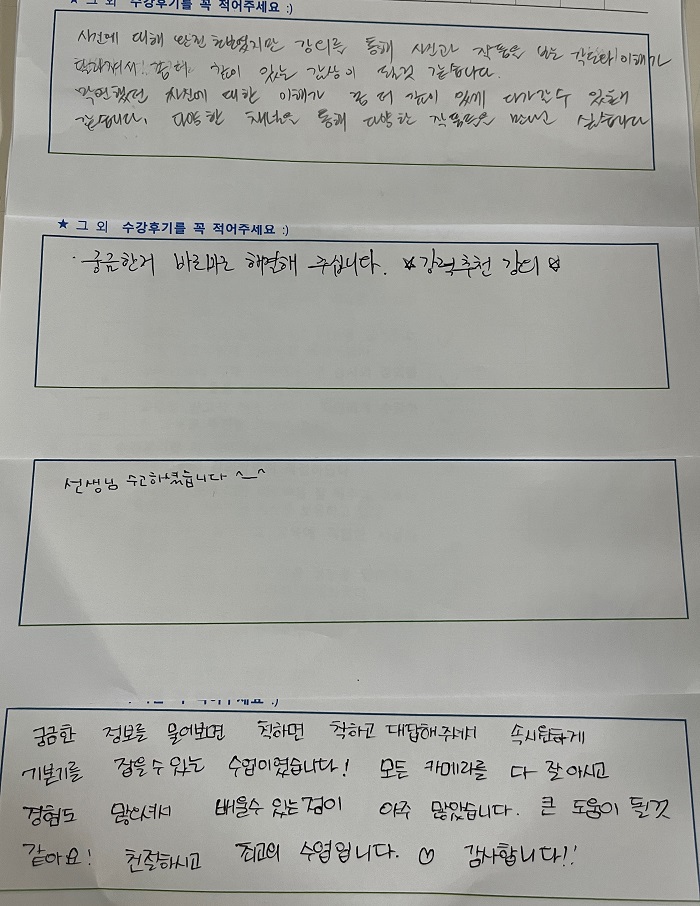 ★ 그 외 수강후기를 꼭 적어주세요 :)
사진에 대해 완전 초보였지만 강의를 통해 사진과 작품을 보는 각도와 이해가
달라져서 좀 더 깊이 있는 감상이 될것 같습니다.
막연했던 사진에 대한 이해가 좀 더 깊이 있게 다가갈수 있을것
같습니다. 다양한 채널을 통해 다양한 작품들을 만나고 싶습니다
★ 그 외 수강후기를 꼭 적어주세요 :)
· 궁금한거 바리바리 해결해 주십니다. ☆강력추천 강의☆
선생님 수고하셨습니다 ^_^
궁금한 정보를 물어보면 척하면 착하고 대답해주셔서 속시원하게
기본기를 잡을수 있는 수업이었습니다! 모든 카메라를 다 잘아시고
경험도 많으셔서 배울수 있는점이 아주 많았습니다. 큰 도움이 될것
같아요! 친절하시고 최고의 수업입니다. ♡ 감사합니다!!